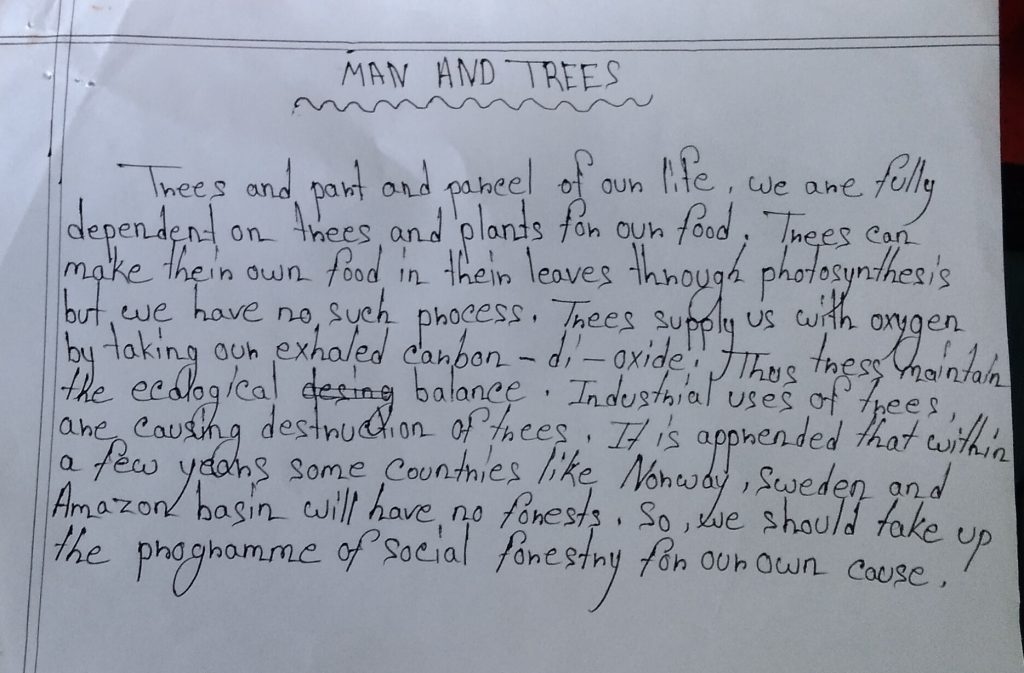 MAN AND TREES
Trees and part and parcel of our life, we are fully
dependent on trees and plants for our food. Trees can
make their own food in their leaves through photosynthesis
but we have no such process. Trees supply us with oxygen
by taking our exhaled carbon - di - oxide. Thus tress maintain
the ecological desing balance. Industrial uses of trees,
are causing destruction of trees. It is apprended that within
a few years some countries like Norway, Sweden and
Amazon basin will have no forests. So, we should take up
the programme of social forestry for our own cause.